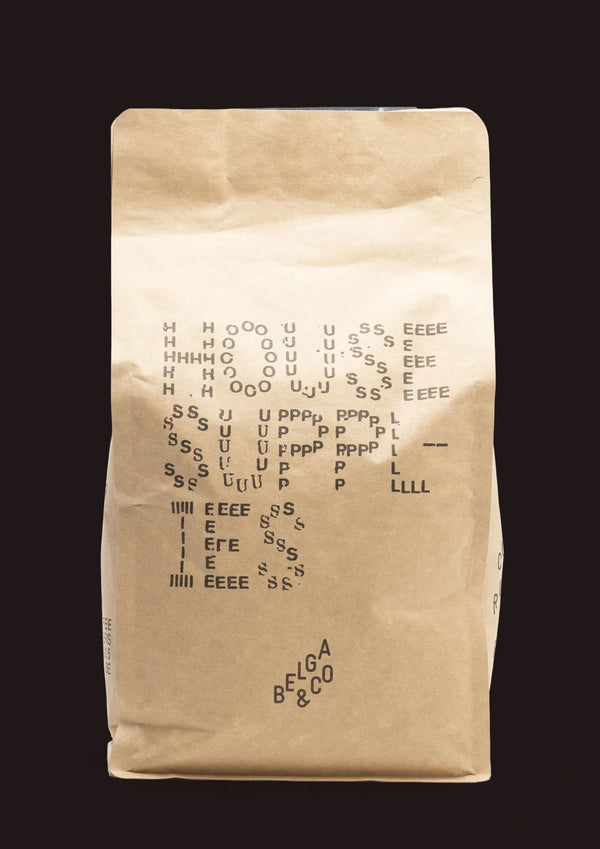 HOUSE
SUPPL–
IES
BELGA
&CO